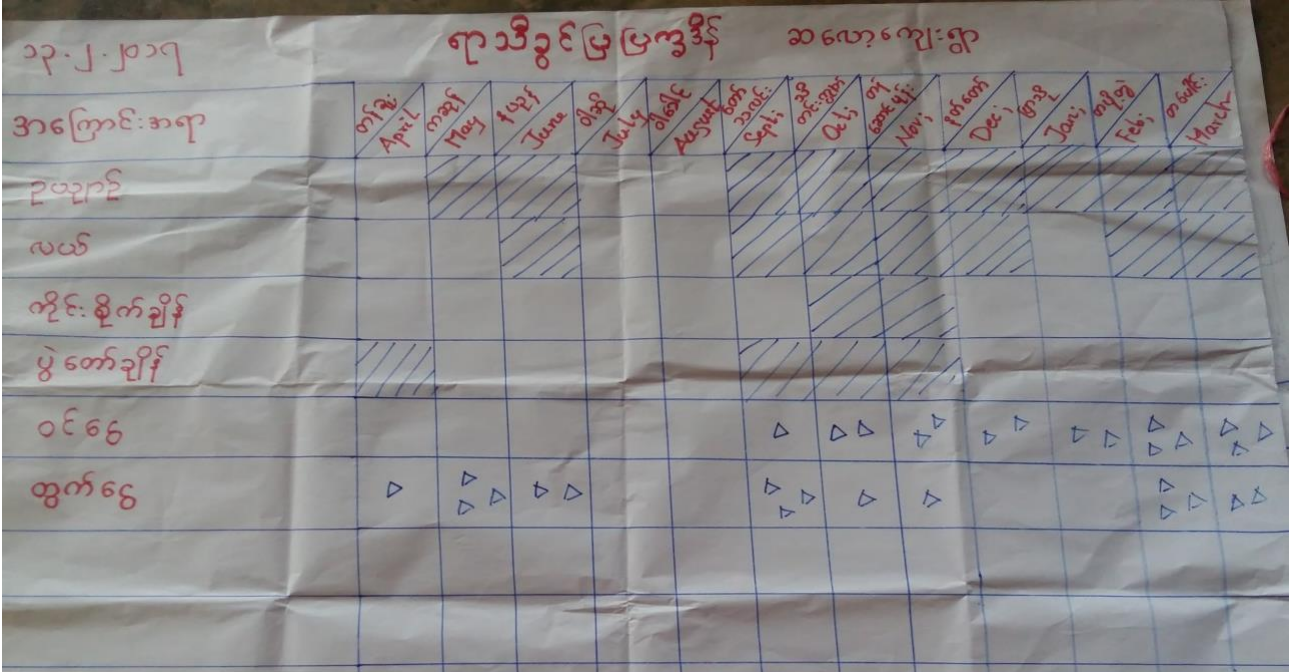 ၁၃.၂.၂၀၁၇ ရာသီခွင်ပြပြက္ခဒိန် ဆလော့ကျေးရွာ
အကြောင်းအရာ တန်ခူး April ကဆုန် May နယုန် June ဝါဆို July ဝါခေါင် August တော်သလင်း Sept; သီတင်းကျွတ် Oct; တန်ဆောင်မုန်း Nov; နတ်တော် Dec; ပြာသို Jan; တပို့တွဲ Feb; တပေါင်း March
ဥယျာဉ်
လယ်
ကိုင်းစိုက်ချိန်
ပွဲတော်ချိန်
ဝင်ငွေ
ထွက်ငွေ